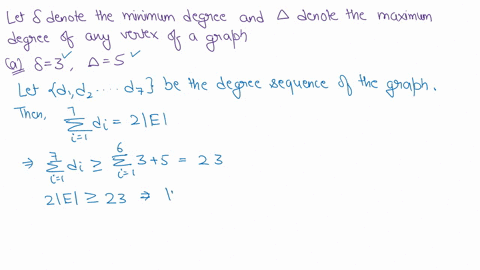 Let δ denote the minimum degree and Δ denote the maximum
degree of any vertex of a graph
(a) δ=3 ✓, Δ=5 ✓
Let {d₁, d₂ ..... d₇} be the degree sequence of the graph.
Then, ∑_{i=1}^{7} dᵢ = 2|E|
⇒ ∑_{i=1}^{7} dᵢ ≥ ∑_{i=1}^{6} 3+5 = 23
2|E| ≥ 23 ⇒